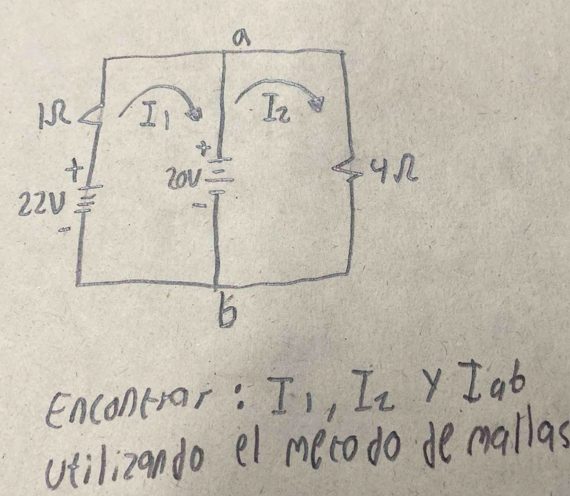 a
1Ω
I1
I2
+
+
20V
4Ω
22V
-
-
b
Encontrar: I1, I2 y Iab
utilizando el metodo de mallas